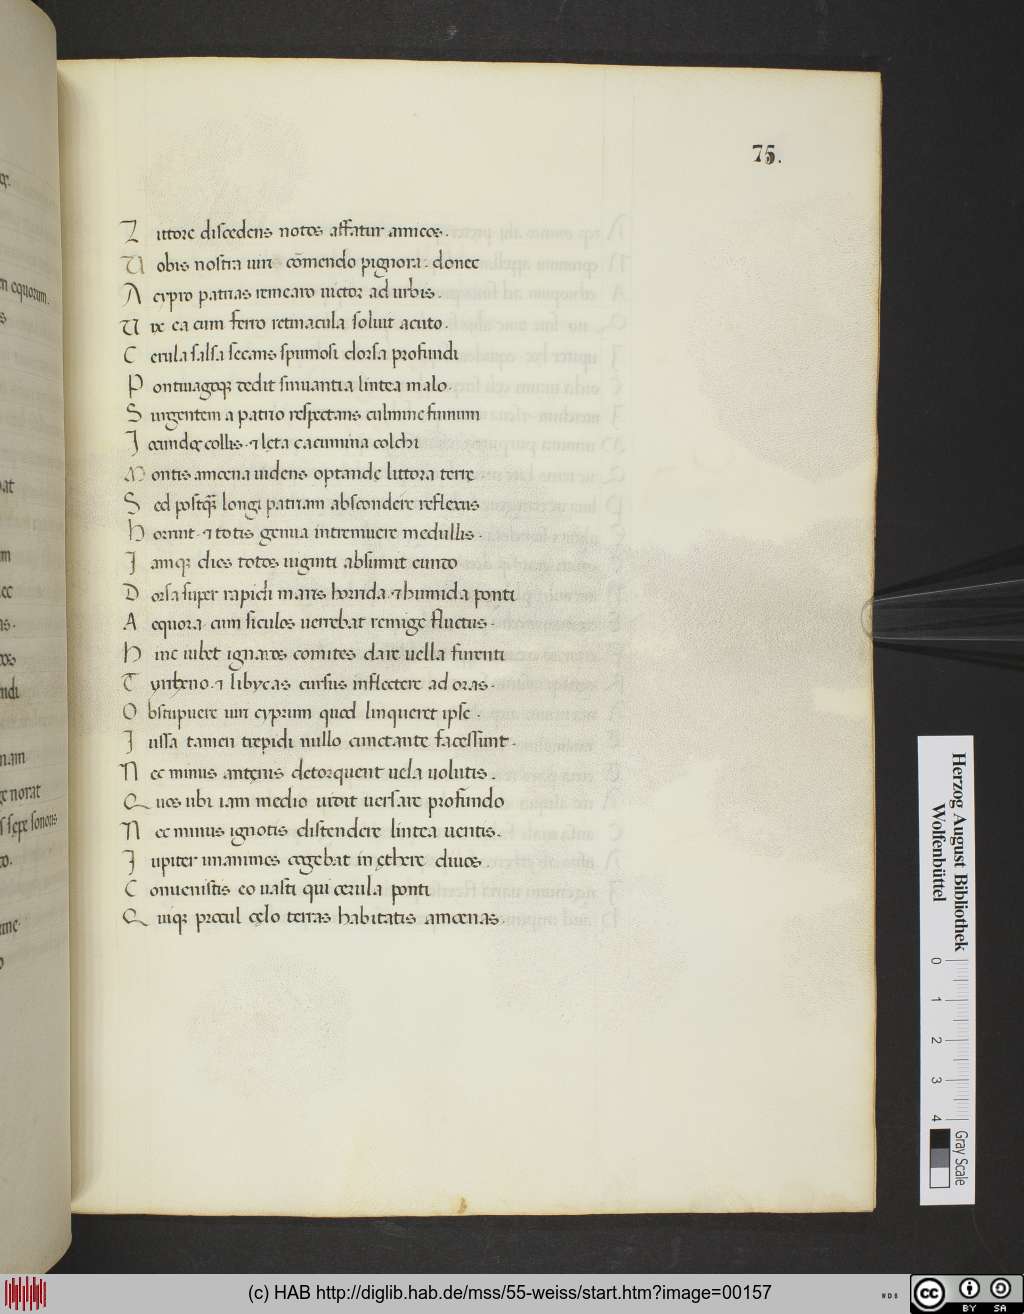 75.
Littore discedens notos affatur amicos.
Vobis nostra uiri cōmendo pignora. donec
A cypro patrias remearo uictor ad urbis.
Vix ea cum ferro retinacula soluit acuto.
Cerula salsa secans spumosi dorsa profundi
Pontiuagoqꝫ dedit sinuantia lintea malo.
Surgentem a patrio respectans culmine fumum
Iocundęqꝫ collis. ⁊ lęta cacumina colchi
Montis amoena uidens optandę littora terre
Sed postqꝫ longi patriam abscondere reflexus
Horruit. ⁊ totis genua intremuere medullis.
Iamqꝫ dies totos uiginti absumit eundo
Dorsa super rapidi maris horrida. ⁊ humida ponti
Aequora. cum siculos uerrebat remige fluctus.
Hinc iubet ignaros comites dare uella furenti
Tyrrheno. ⁊ libycas cursus inflectere ad oras.
Obstupuere uiri cyprum quod linqueret ipse.
Iussa tamen trepidi nullo cunctante facessunt.
Nec minus antenis detorquent uela uolutis.
Quos ubi iam medio uidit uersare profundo
Nec minus ignotis distendere lintea uentis.
Iupiter unanimos cogebat in ęthere diuos.
Conuenistis eo uasti qui cerula ponti
Quiqꝫ procul cęlo terras habitatis amoenas.
en equorum.
nam
ge norat
sępe sonoris
Herzog August Bibliothek
Wolfenbüttel
0 1 2 3 4
Gray Scale
(c) HAB http://diglib.hab.de/mss/55-weiss/start.htm?image=00157
cc BY SA